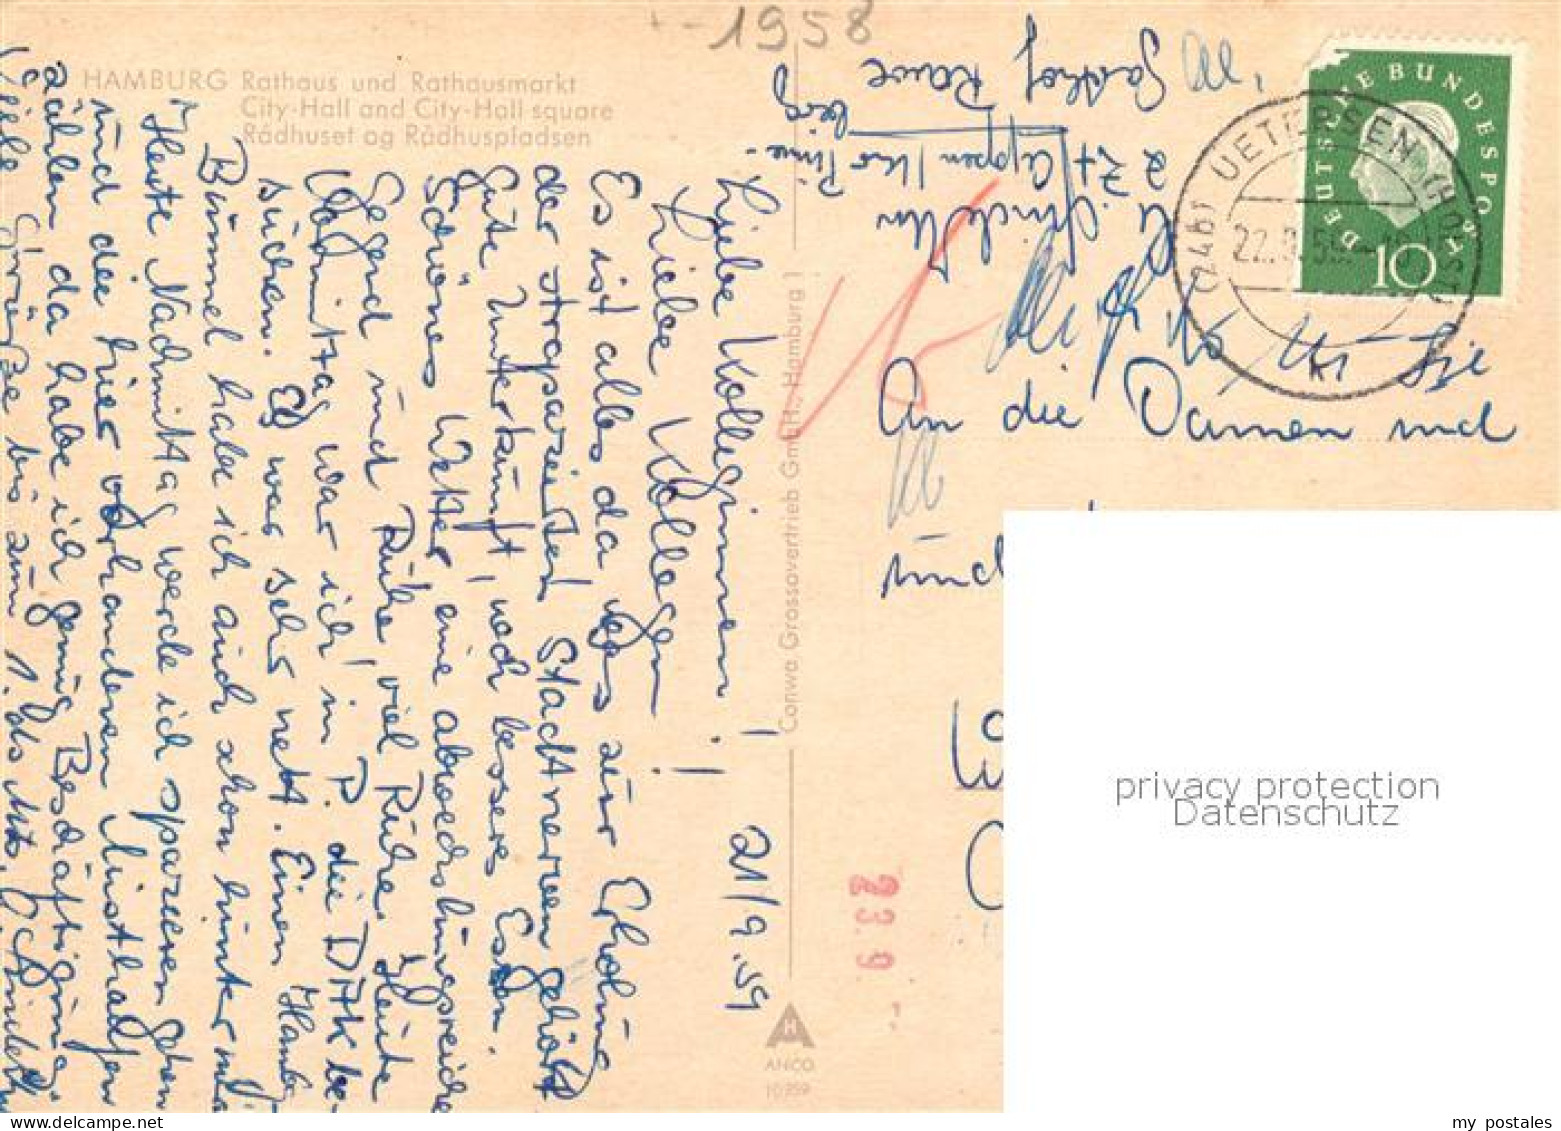 1958
HAMBURG Rathaus und Rathausmarkt
City-Hall and City-Hall square
Rådhuset og Rådhuspladsen
21/9.59
Liebe Kolleginnen!
Liebe Kollegen!
Es ist alles da was zur Erholung
der strapazierten Stadtnerven gehört
Gute Unterkunft, noch besseres Essen.
Schönes Wetter, eine abwechslungsreiche
Gegend und Ruhe, viel Ruhe. Heute
Vormittag war ich in P. die DAK be-
suchen. Es war sehr nett. Einen Hambg
Bummel habe ich auch schon hinter mir
Heute Nachmittag werde ich spazieren gehen
und die hier vorhandenen
zählen da habe ich genug Beschäftigung.
Viele Grüsse bis zum 1. ds Mts.
Conwa Grossovertrieb GmbH., Hamburg 1
ANCO
10959
H
z Zt Appen / Krs Pinne-
berg
Gasthof
DEUTSCHE BUNDESPOST
10
(24b) UETERSEN (HOLST)
22.9.59
An die Damen und
und
23.9
privacy protection
Datenschutz
my postales